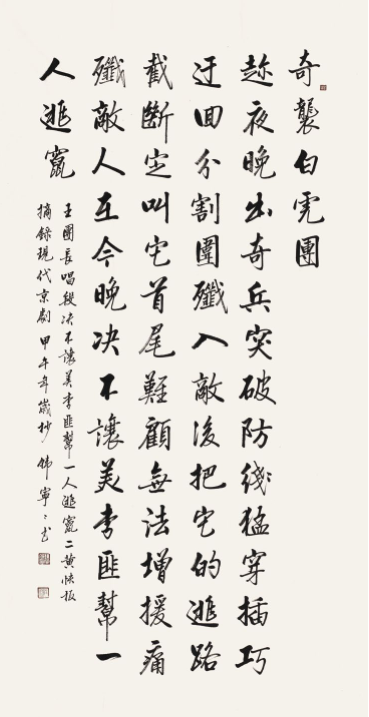 奇襲白虎團
趁夜晚出奇兵突破防线猛穿插巧
迂回分割圍殲入敵後把它的逃路
截斷定叫它首尾難顧無法增援痛
殲敵人在今晚决不讓美李匪幫一
人逃竄
王團長唱段决不讓美李匪幫一人逃竄二黄快板
摘錄現代京劇 甲午年歲杪 韩寧〻书